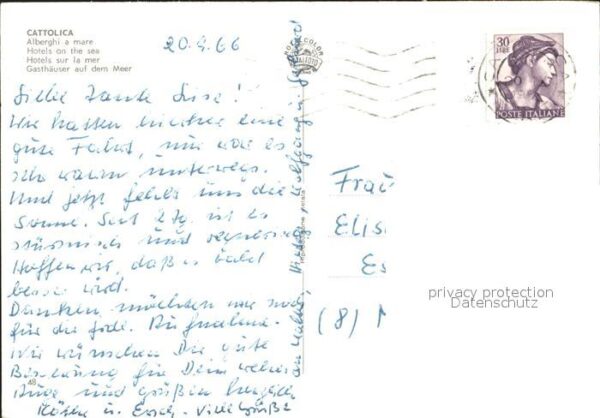 CATTOLICA
Alberghi a mare
Hotels on the sea
Hotels sur la mer
Gasthäuser auf dem Meer
30
LIRE
POSTE ITALIANE
Liebe Tante Suse!
Wir hatten hierher eine
gute Fahrt, nur war es
sehr warm unterwegs.
Und jetzt fehlt uns die
Sonne. Seit 2 Tg. ist es
stürmisch und regnerisch
Hoffen wir, daß es bald
besser wird.
Danken möchten wir noch
für die Aufnahme.
Wir wünschen Dir gute
Besserung für Dein
Auge und grüßen herzlich
u. Viele Grüße
Frau
Elis
Es
(8)
privacy protection
Datenschutz
48